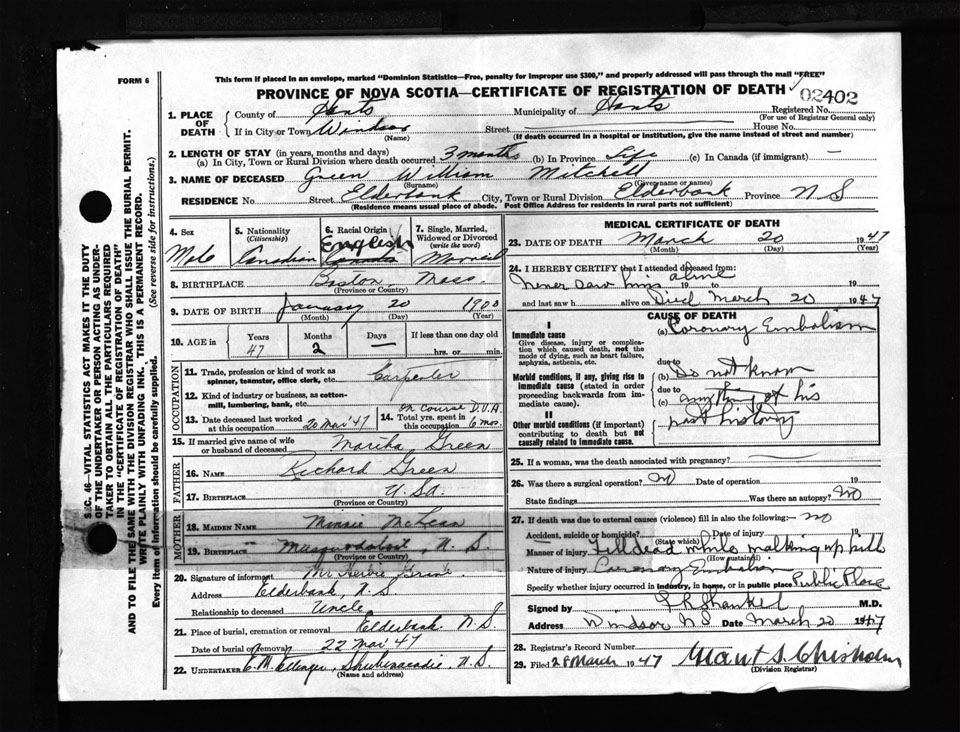 FORM 6
This form if placed in an envelope, marked "Dominion Statistics—Free, penalty for improper use $300," and properly addressed will pass through the mail "FREE"
PROVINCE OF NOVA SCOTIA—CERTIFICATE OF REGISTRATION OF DEATH
02402
1. PLACE OF DEATH
County of Hants Municipality of Hants Registered No.
(For use of Registrar General only)
If in City or Town Windsor Street House No.
(Name) (If death occurred in a hospital or institution, give the name instead of street and number)
2. LENGTH OF STAY (in years, months and days)
(a) In City, Town or Rural Division where death occurred 3 months (b) In Province Life (c) In Canada (if immigrant) —
3. NAME OF DECEASED Green William Mitchell
(Surname) (Given name or names)
RESIDENCE No. Street Elderbank City, Town or Rural Division Elderbank Province N S
(Residence means usual place of abode. Post Office Address for residents in rural parts not sufficient)
4. Sex
Male
5. Nationality
(Citizenship)
Canadian
6. Racial Origin
English
7. Single, Married, Widowed or Divorced
(write the word)
Married
8. BIRTHPLACE Boston Mass.
(Province or Country)
9. DATE OF BIRTH January 20 1900
(Month) (Day) (Year)
10. AGE in
Years
47
Months
2
Days
—
If less than one day old
hrs. or min.
OCCUPATION
11. Trade, profession or kind of work as spinner, teamster, office clerk, etc. Carpenter
12. Kind of industry or business, as cotton-mill, lumbering, bank, etc.
13. Date deceased last worked at this occupation 20 Mar '47
14. Total yrs. spent in this occupation On Course D.V.A. 6 mos.
15. If married give name of wife or husband of deceased Martha Green
FATHER
16. NAME Richard Green
17. BIRTHPLACE U.S.A.
(Province or Country)
MOTHER
18. MAIDEN NAME Minnie McLean
19. BIRTHPLACE Musquodoboit, N. S.
(Province or Country)
20. Signature of informant Mr
Address Elderbank, N. S.
Relationship to deceased Uncle
21. Place of burial, cremation or removal Elderbank N. S
Date of burial or removal 22 Mar 47
22. UNDERTAKER Shubenacadie, N. S.
(Name and address)
MEDICAL CERTIFICATE OF DEATH
23. DATE OF DEATH March 20 1947
(Month) (Day) (Year)
24. I HEREBY CERTIFY that I attended deceased from:
never saw him alive 19 to 19
and last saw h alive on Died March 20 1947
CAUSE OF DEATH
I
Immediate cause
Give disease, injury or complication which caused death, not the mode of dying, such as heart failure, asphyxia, asthenia, etc.
(a) Coronary Embolism
due to
Morbid conditions, if any, giving rise to immediate cause (stated in order proceeding backwards from immediate cause).
(b) Do not know
due to
(c) anything of his
II
Other morbid conditions (if important) contributing to death but not causally related to immediate cause.
past history
25. If a woman, was the death associated with pregnancy?
26. Was there a surgical operation? No Date of operation 19
State findings Was there an autopsy? No
27. If death was due to external causes (violence) fill in also the following:— no
Accident, suicide or homicide? Date of injury 19
(State which)
Manner of injury Fell dead while walking up hill
(How sustained)
Nature of injury Coronary Embolism
Specify whether injury occurred in industry, in home, or in public place Public Place
Signed by Shankel M.D.
Address Windsor N S Date March 20 1947
28. Registrar's Record Number
29. Filed 28 March 1947 Grant S. Chisholm
(Division Registrar)
SEC. 46—VITAL STATISTICS ACT MAKES IT THE DUTY OF THE UNDERTAKER OR PERSON ACTING AS UNDERTAKER TO OBTAIN ALL THE PARTICULARS REQUIRED IN THE "CERTIFICATE OF REGISTRATION OF DEATH" AND TO FILE THE SAME WITH THE DIVISION REGISTRAR WHO SHALL ISSUE THE BURIAL PERMIT.
WRITE PLAINLY WITH UNFADING INK. THIS IS A PERMANENT RECORD.
Every item of information should be carefully supplied. (See reverse side for instructions.)